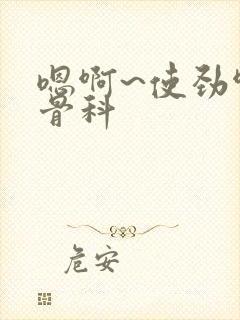 嗯啊~使劲
骨科
危安